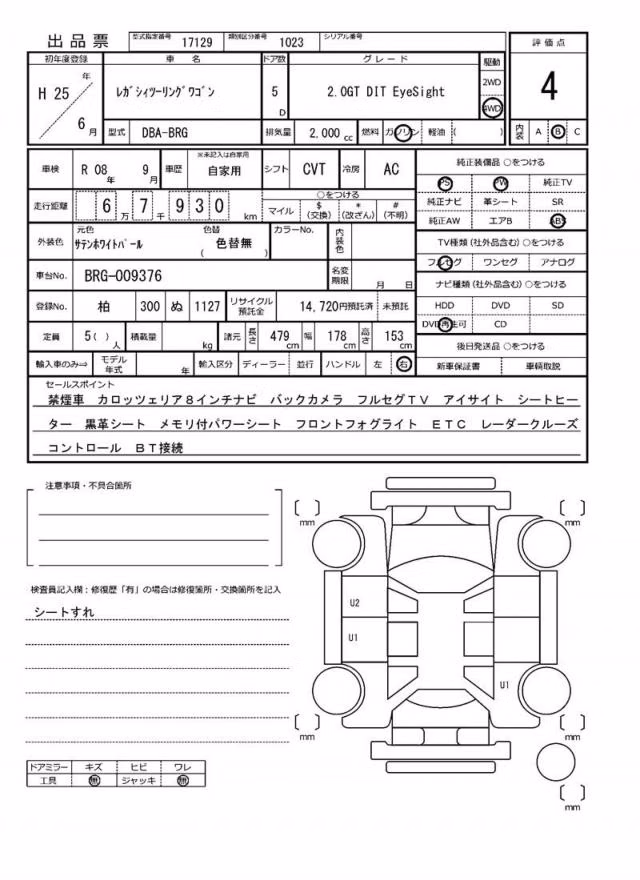 出品票 型式指定番号 17129 類別区分番号 1023 シリアル番号
初年度登録 車名 ドア数 グレード 駆動 評価点
H 25 年 6 月 レガシィツーリングワゴン 5 D 2.0GT DIT EyeSight 2WD 4WD 4
型式 DBA-BRG 排気量 2,000 cc 燃料 ガソリン 軽油 ( ) 内装 A B C
車検 R 08 年 9 月 車歴 ※未記入は自家用 自家用 シフト CVT 冷房 AC
走行距離 6 万 7 千 9 3 0 km ○をつける マイル $ (交換) * (改ざん) # (不明)
外装色 元色 サテンホワイトパール 色替 ( 色替無 ) カラーNo. 内装色
車台No. BRG-009376 名変期限 月 日
登録No. 柏 300 ぬ 1127 リサイクル預託金 14,720円預託済 未預託
定員 5( ) 人 積載量 kg 諸元 長さ 479 cm 幅 178 cm 高さ 153 cm
輸入車のみ⇒ モデル年式 年 輸入区分 ディーラー 並行 ハンドル 左 右
純正装備品 ○をつける
PS PW 純正TV
純正ナビ 革シート SR
純正AW エアB ABS
TV種類 (社外品含む) ○をつける
フルセグ ワンセグ アナログ
ナビ種類 (社外品含む) ○をつける
HDD DVD SD
DVD再生可 CD
後日発送品 ○をつける
新車保証書 車輌取説
セールスポイント
禁煙車 カロッツェリア8インチナビ バックカメラ フルセグTV アイサイト シートヒー
ター 黒革シート メモリ付パワーシート フロントフォグライト ETC レーダークルーズ
コントロール BT接続
注意事項・不具合箇所
検査員記入欄：修復歴「有」の場合は修復箇所・交換箇所を記入
シートすれ
[ ] mm [ ] mm
U2
U1
U1
[ ] mm [ ] mm
[ ] mm
ドアミラー キズ ヒビ ワレ
工具 無 ジャッキ 無